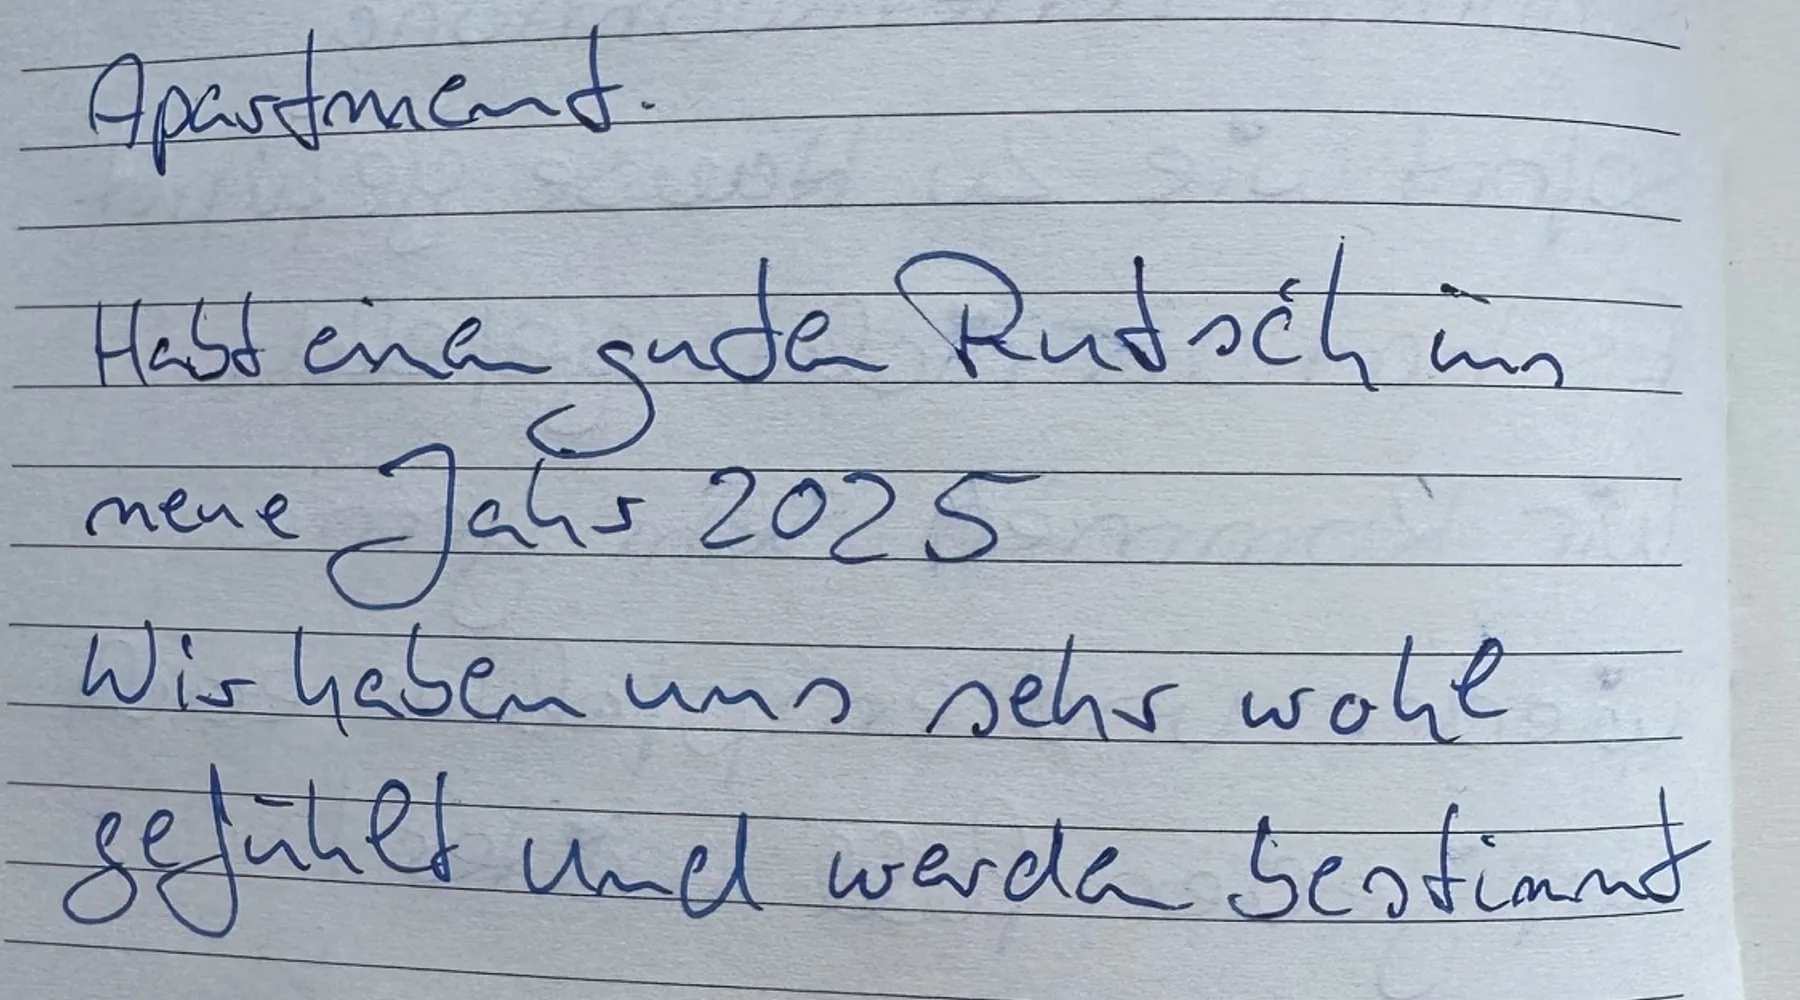 Apartment.
Habt einen guten Rutsch ins
neue Jahr 2025
Wir haben uns sehr wohl
gefühlt und werden bestimmt